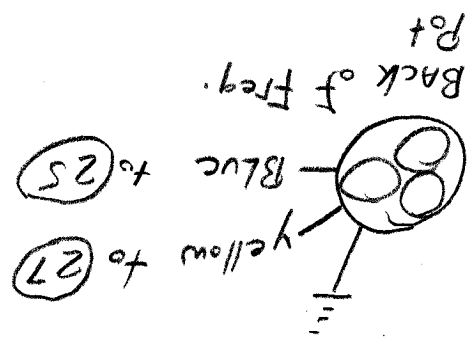 yellow to 27
BLUE to 25
BACK of Freq.
Pot